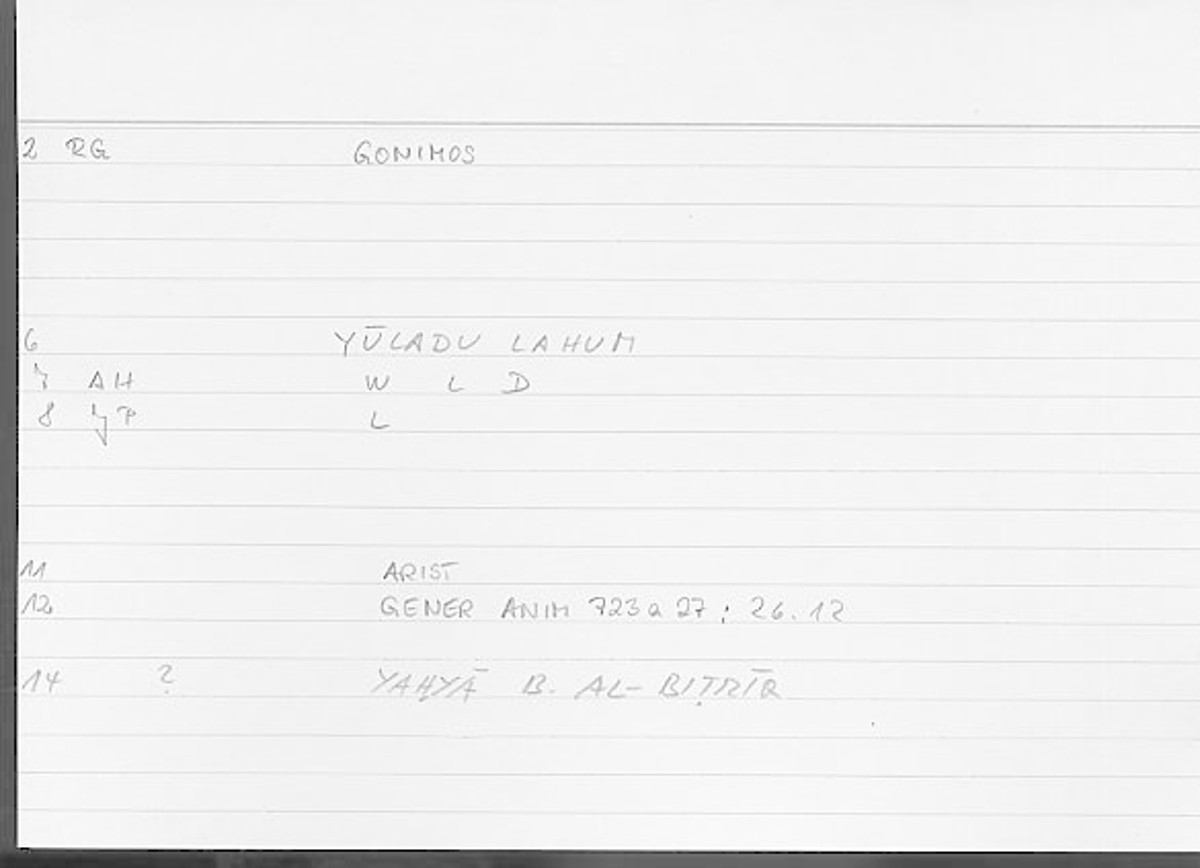 2 RG GONIMOS
6 YŪLADU LAHUM
7 AH W L D
8 L
11 ARIST
12 GENER ANIM 723a27; 26.12
14 ? YAḤYĀ B. AL-BIṬRĪQ